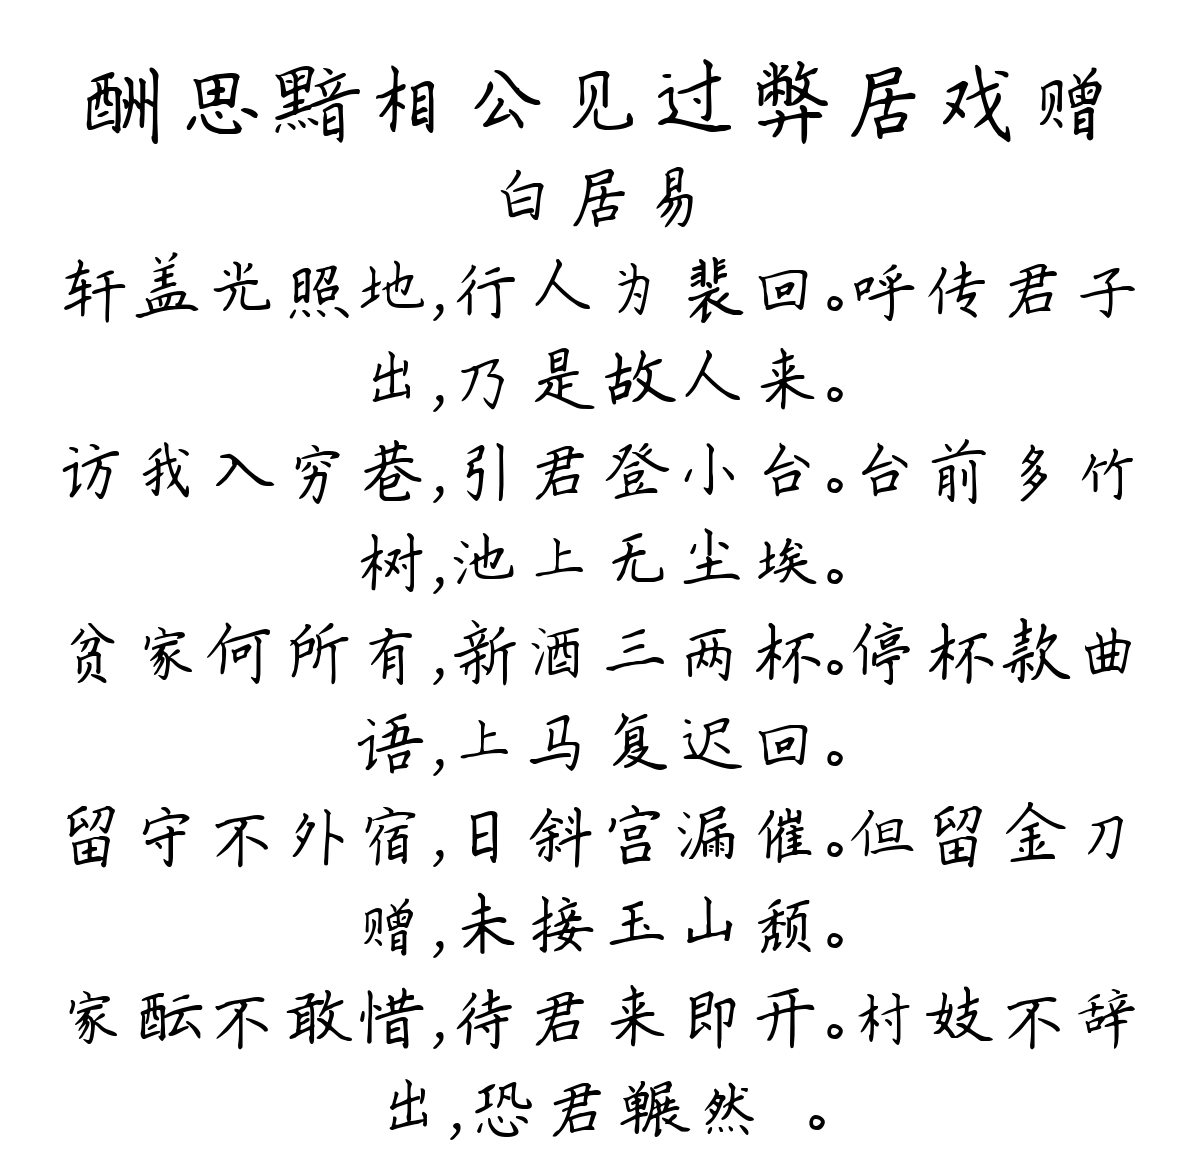 酬思黯相公见过弊居戏赠
白居易
轩盖光照地,行人为裴回。呼传君子
出,乃是故人来。
访我入穷巷,引君登小台。台前多竹
树,池上无尘埃。
贫家何所有,新酒三两杯。停杯款曲
语,上马复迟回。
留守不外宿,日斜宫漏催。但留金刀
赠,未接玉山颓。
家酝不敢惜,待君来即开。村妓不辞
出,恐君冁然 。